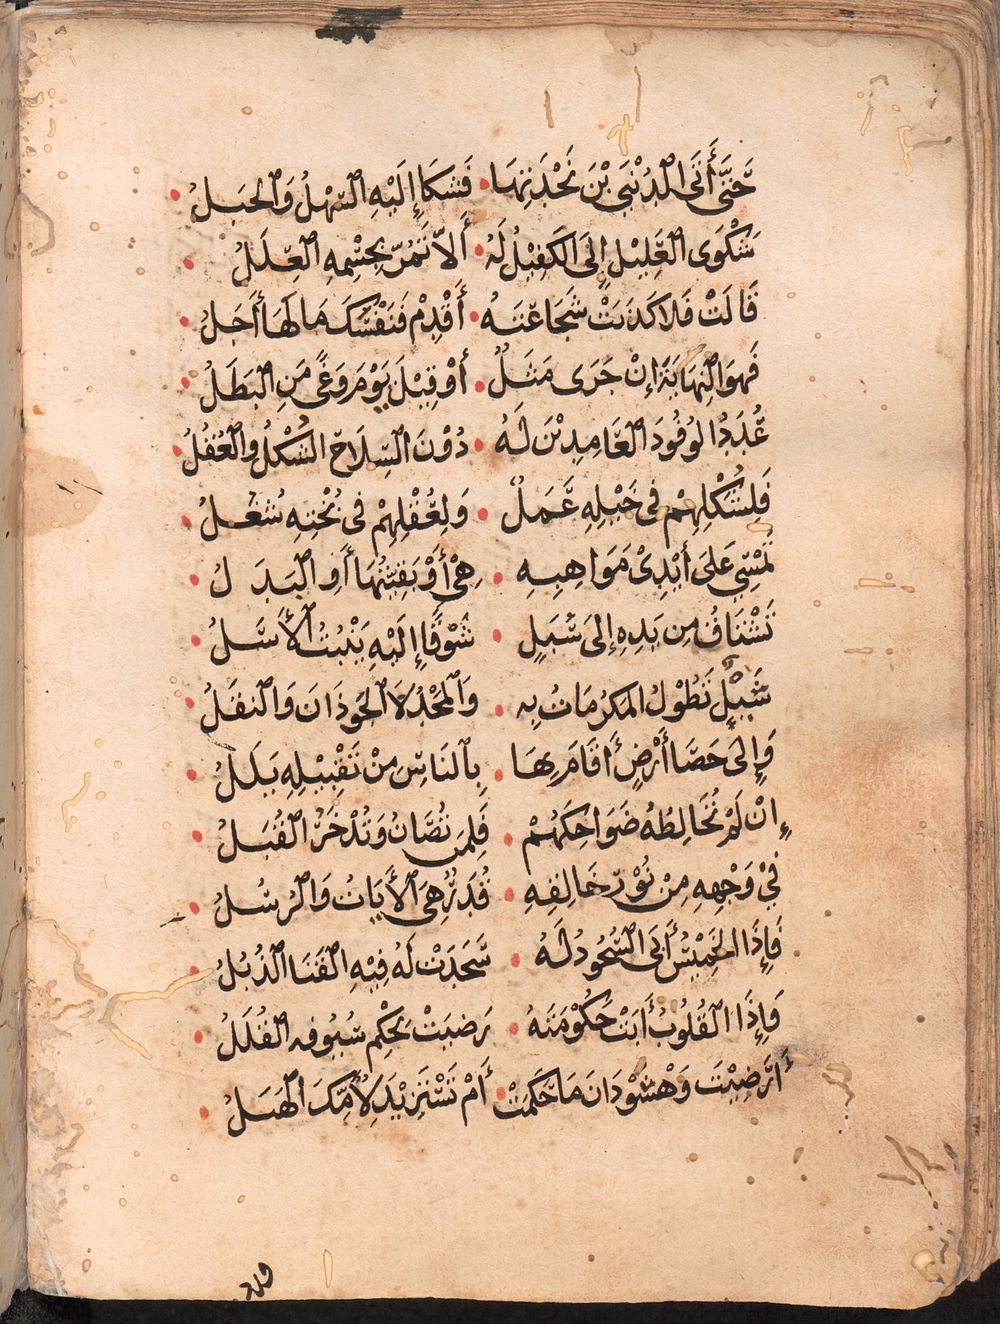 حَتَّى أَتَى الدُّنْيَا بْنُ نَجْدَتِهَا • فَشَكَا إِلَيْهِ السَّهْلُ وَالْجَبَلُ •
شَكْوَى الْعَلِيْلِ إِلَى الْكَفِيْلِ لَهُ • أَلاَّ تَمُرَّ بِجِسْمِهِ الْعِلَلُ •
قَالَتْ فَلَا كَذَبَتْ شَجَاعَتُهُ • أَقْدِمْ فَنَفْسُكَ مَا لَهَا أَجَلُ •
فَهوَ النِّهَايَةُ إِنْ جَرَى مَثَلٌ • أَوْ قِيْلَ يَوْمَ وَغًى مَنِ الْبَطَلُ •
عُدَدُ الوُفُودِ الْعَامِدِيْنَ لَهُ • دُوْنَ السِّلَاحِ الشُّكْلُ وَالْعُقُلُ •
فَلِشُكْلِهِمْ فِي خَيْلِهِ عَمَلٌ • وَلِعُقْلِهِمْ فِي بُخْتِهِ شُغُلُ •
تُمْسِي عَلَى أَيْدِيْ مَوَاهِبِهِ • هِيَ أَوْ بَقِيَّتُهَا أَوِ الْبَدَلُ
تَشْتَاقُ مِن يَدِهِ إِلَى سَبَلٍ • شَوْقًا إِلَيْهِ يَنْبُتُ الأَسَلُ •
سَبَلٌ تَطُوْلُ المَكرُمَاتُ بِهِ • وَالْمَجْدُ لَا الْحَوْذَانُ وَالْنفَلُ •
وَإِلَى حَصَا أَرْضٍ أَقَامَ بِهَا • بِالنَّاسِ مِنْ تَقْبِيْلِهِ يَلَلُ •
إِنْ لَمْ تُخَالِطْهُ ضَوَاحِكُهُمْ • فَلِمَن تُصَانُ وَتُذْخَرُ الْقُبَلُ •
فِيْ وَجْهِهِ مِنْ نُوْرِ خَالِقِهِ • قُدَرٌ هِيَ الْأَيَاتُ وَالْرُسُلُ •
فَإِذَا الْخَمِيْسُ أَبَى السُّجُودَ لَهُ • سَجَدَتْ لَهُ فِيْهِ الْقَنَا الذُّبُلُ •
وَإِذَا الْقُلُوبُ أَبَتْ حُكُوْمَتَهُ • رَضِيَتْ بِحُكْمِ سُيُوفِهِ الْقُلَلُ •
أَرَضِيْتَ وَهْشُوْذَانَ مَا حَكَمَتْ • أَمْ تَسْتَزِيْدَ لِأُمِّكَ الْهَبَلُ •